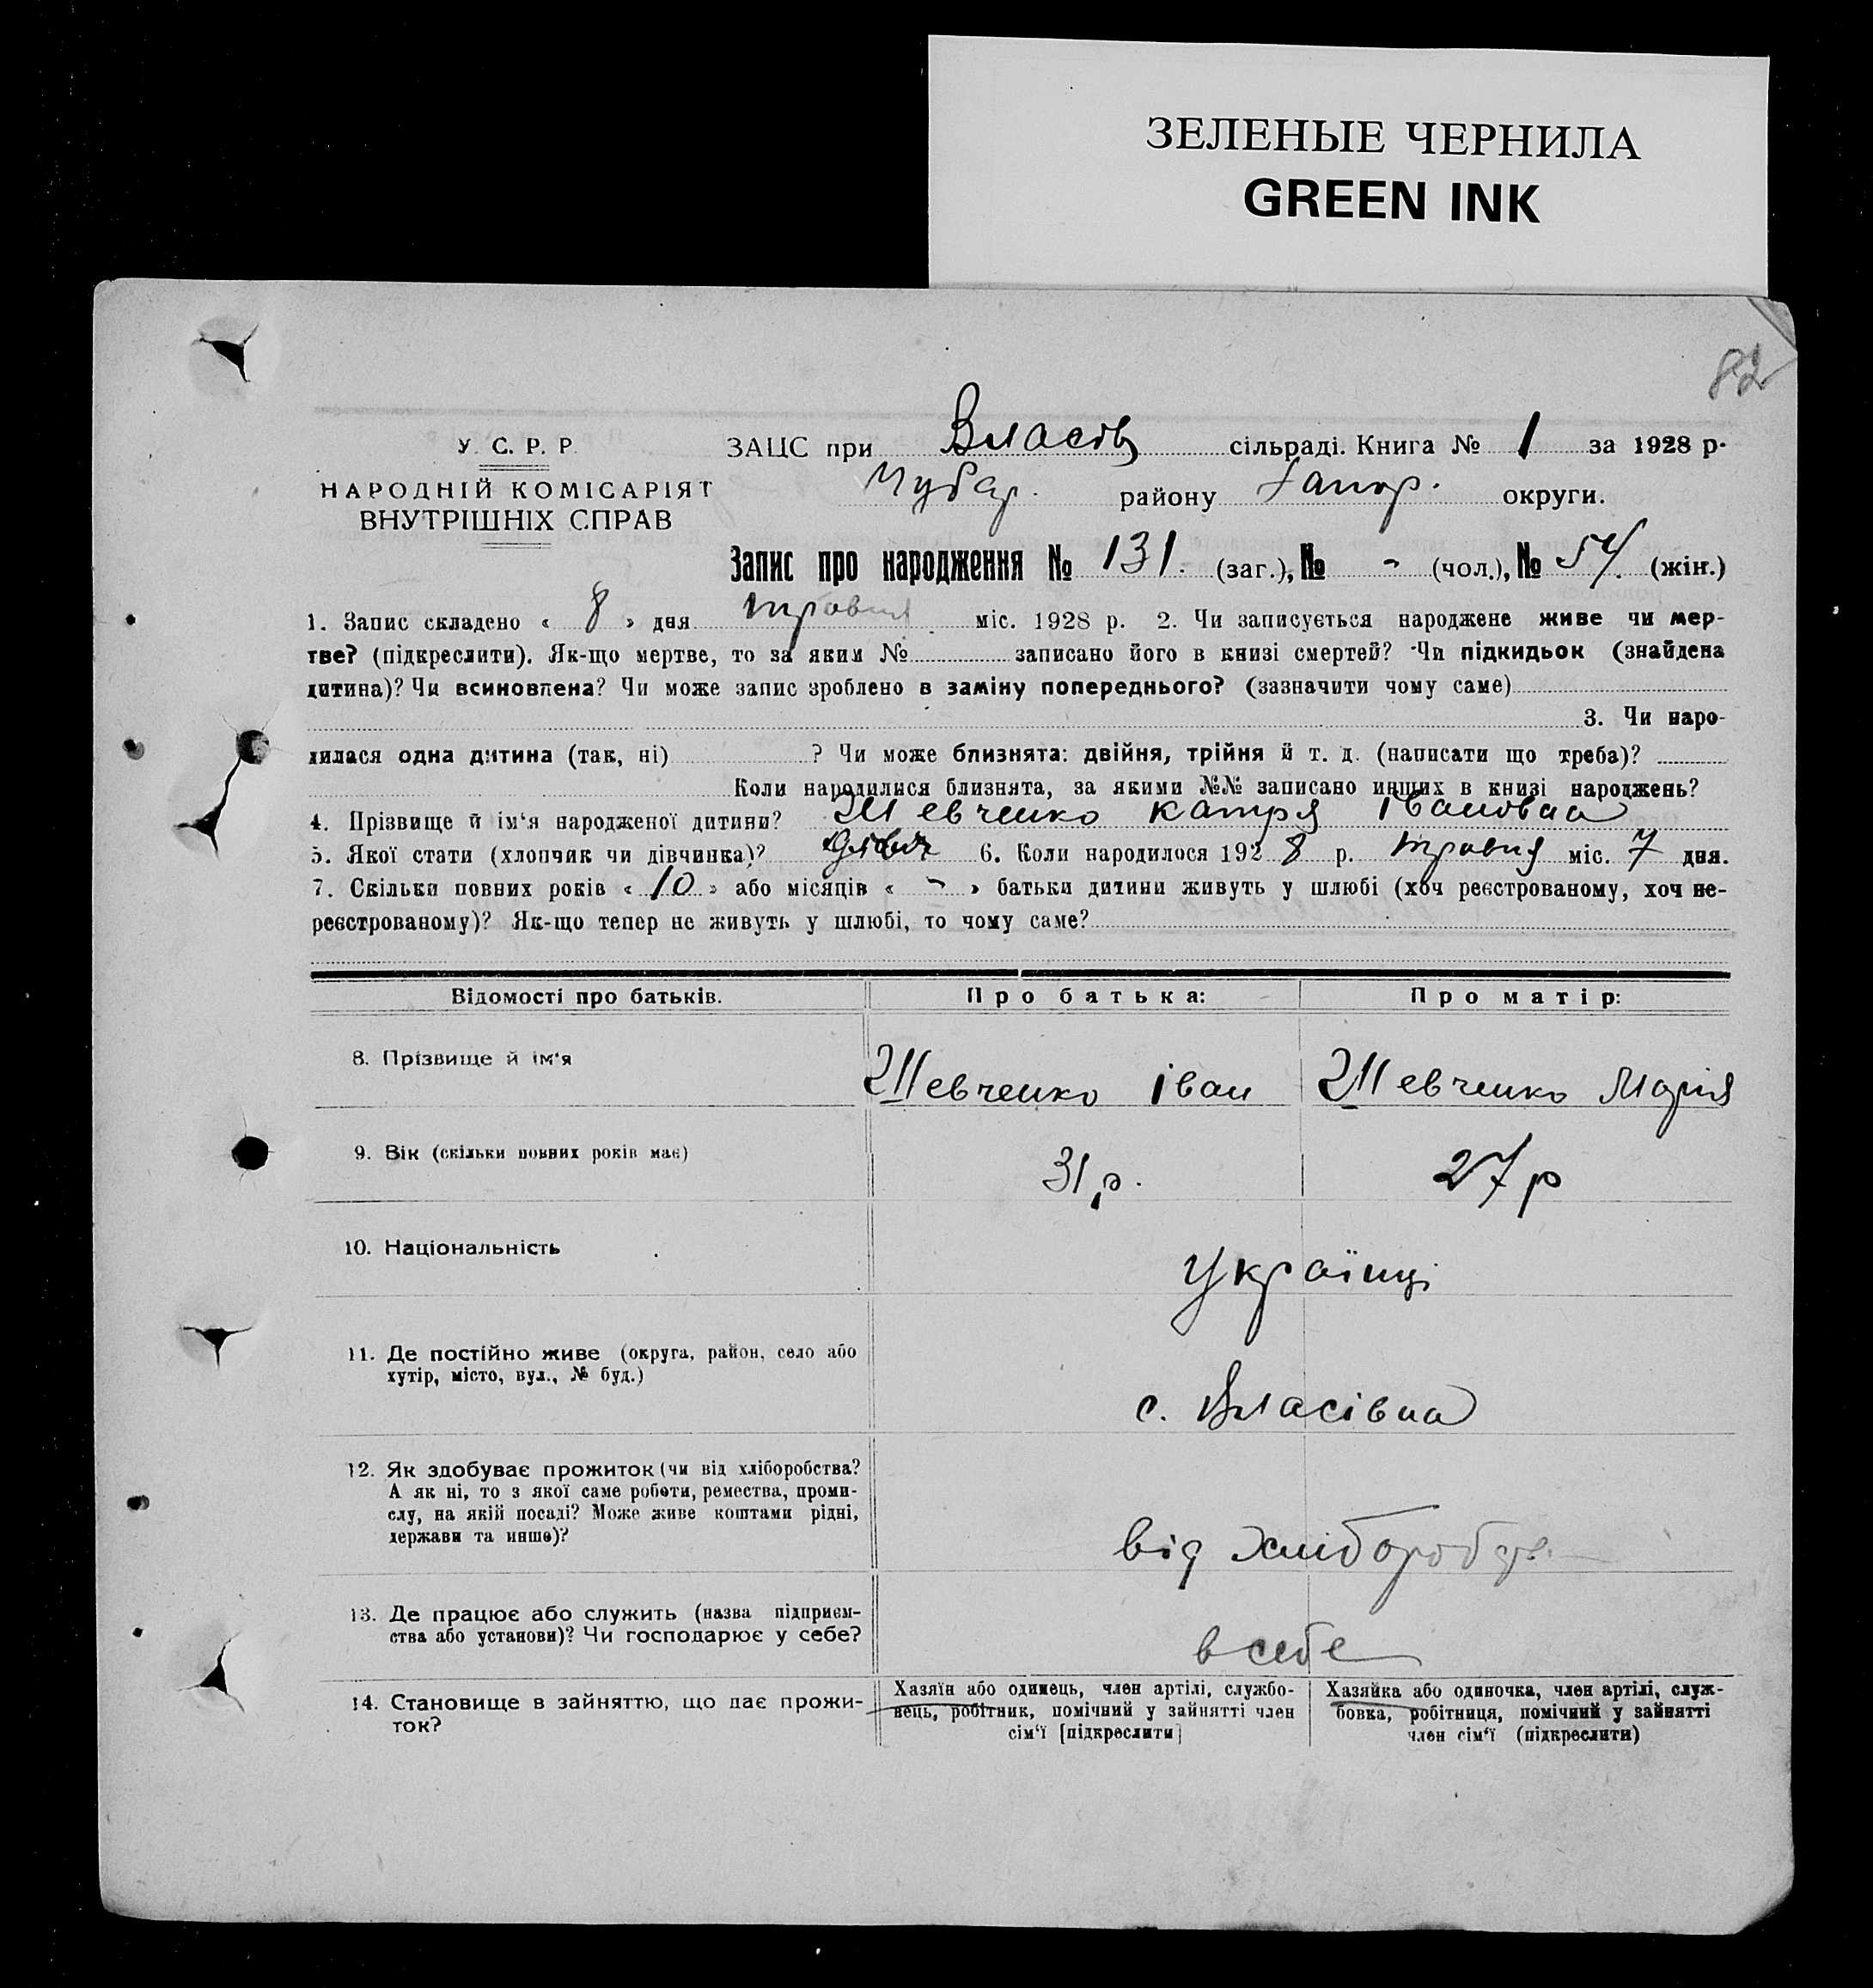 ЗЕЛЕНЫЕ ЧЕРНИЛА
GREEN INK
82
У. С. Р. Р.
НАРОДНІЙ КОМІСАРІЯТ
ВНУТРІШНІХ СПРАВ
ЗАЦС при Власів сільраді. Книга № 1 за 1928 р.
Чубар. району Запор. округи.
Запис про народження № 131. (заг.), № - (чол.), № 54. (жін.)
1. Запис складено « 8 » дня травня міс. 1928 р. 2. Чи записується народжене живе чи мер-
тве? (підкреслити). Як-що мертве, то за яким № записано його в книзі смертей? Чи підкидьок (знайдена
дитина)? Чи всиновлена? Чи може запис зроблено в заміну попереднього? (зазначити чому саме)
3. Чи наро-
дилася одна дитина (так, ні) ? Чи може близнята: двійня, трійня й т. д. (написати що треба)?
Коли народилися близнята, за якими №№ записано инших в книзі народжень?
4. Прізвище й ім‘я народженої дитини? Шевченко Катря Івановна
5. Якої стати (хлопчик чи дівчинка)? дівч 6. Коли народилося 192 8 р. травня міс. 7 дня.
7. Скільки повних років « 10 » або місяців « - » батьки дитини живуть у шлюбі (хоч реєстрованому, хоч не-
реєстрованому)? Як-що тепер не живуть у шлюбі, то чому саме?
Відомості про батьків. Про батька: Про матір:
8. Прізвище й ім‘я Шевченко Іван Шевченко Марія
9. Вік (скільки повних років має) 31 р. 27 р
10. Національність Українці
11. Де постійно живе (округа, район, село або
хутір, місто, вул., № буд.)
с. Власівка
12. Як здобуває прожиток (чи від хліборобства?
А як ні, то з якої саме роботи, ремества, проми-
слу, на якій посаді? Може живе коштами рідні,
держави та инше)?
від хліборобст.
13. Де працює або служить (назва підприєм-
ства або установи)? Чи господарює у себе?
в себе
14. Становище в зайняттю, що дає прожи-
ток?
Хазяїн або одинець, член артілі, службо-
вець, робітник, помічний у зайнятті член
сім‘ї [підкреслити]
Хазяйка або одиночка, член артілі, служ-
бовка, робітниця, помічний у зайнятті
член сім‘ї (підкреслити)